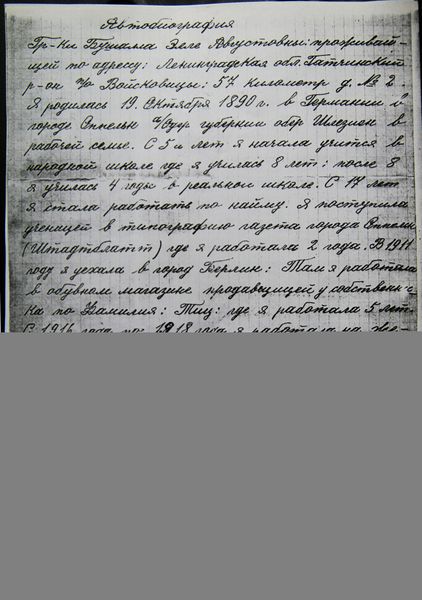 Автобиография
Гр-ки Бушалла Элге Августовны: проживаю-
щей по адрессу: Ленинградская обл. Гатчинский
р-он п/о Войсковицы: 57 километр д. № 2.
Я родилась 19. Октября 1890 г. в Германии в
городе Оппельн а/Одер губернии обер Шлезиен в
рабочей семье. С 5 и лет я начала учится в
народной школе где я училась 8 лет: после 8
я училась 4 годы в реальной школе. С 17 лет
я стала работать по найму. Я поступила
ученицей в типографию газета города Оппельн
(Штадтблатт) где я работала 2 года. В 1911
году я уехала в город Берлин: Там я работала
в обувном магазине продавщицей у собственни-
ка по Фамилия: Тиц: где я работала 5 лет.
С 1916 года по 1918 года я работала на же-